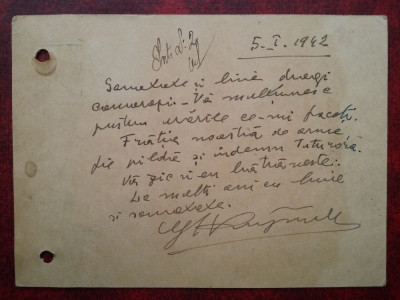 5. I. 1942
Sănătate și bine dragi
camarazi - Vă mulțumesc
pentru urările ce-mi faceți.
Frăția noastră de arme,
fie pildă și îndemn tuturora.
Vă zic și eu bătrânește:
La mulți ani cu bine
și sănătate.